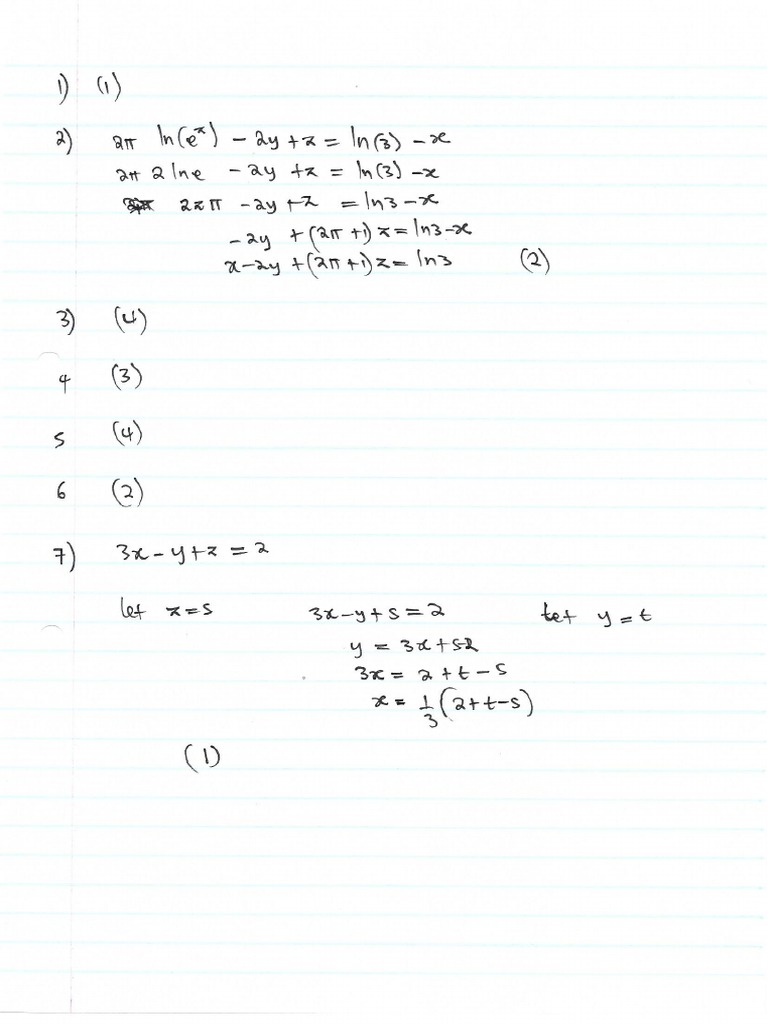 1) (1)
2) 2π ln(e^z) - 2y + z = ln(3) - x
2π z ln e - 2y + z = ln(3) - x
2zπ - 2y + z = ln3 - x
-2y + (2π + 1) z = ln3 - x
x - 2y + (2π + 1) z = ln3 (2)
3) (4)
4 (3)
5 (4)
6 (2)
7) 3x - y + z = 2
let z = s 3x - y + s = 2 let y = t
y = 3x + s - 2
3x = 2 + t - s
x = 1/3 (2 + t - s)
(1)